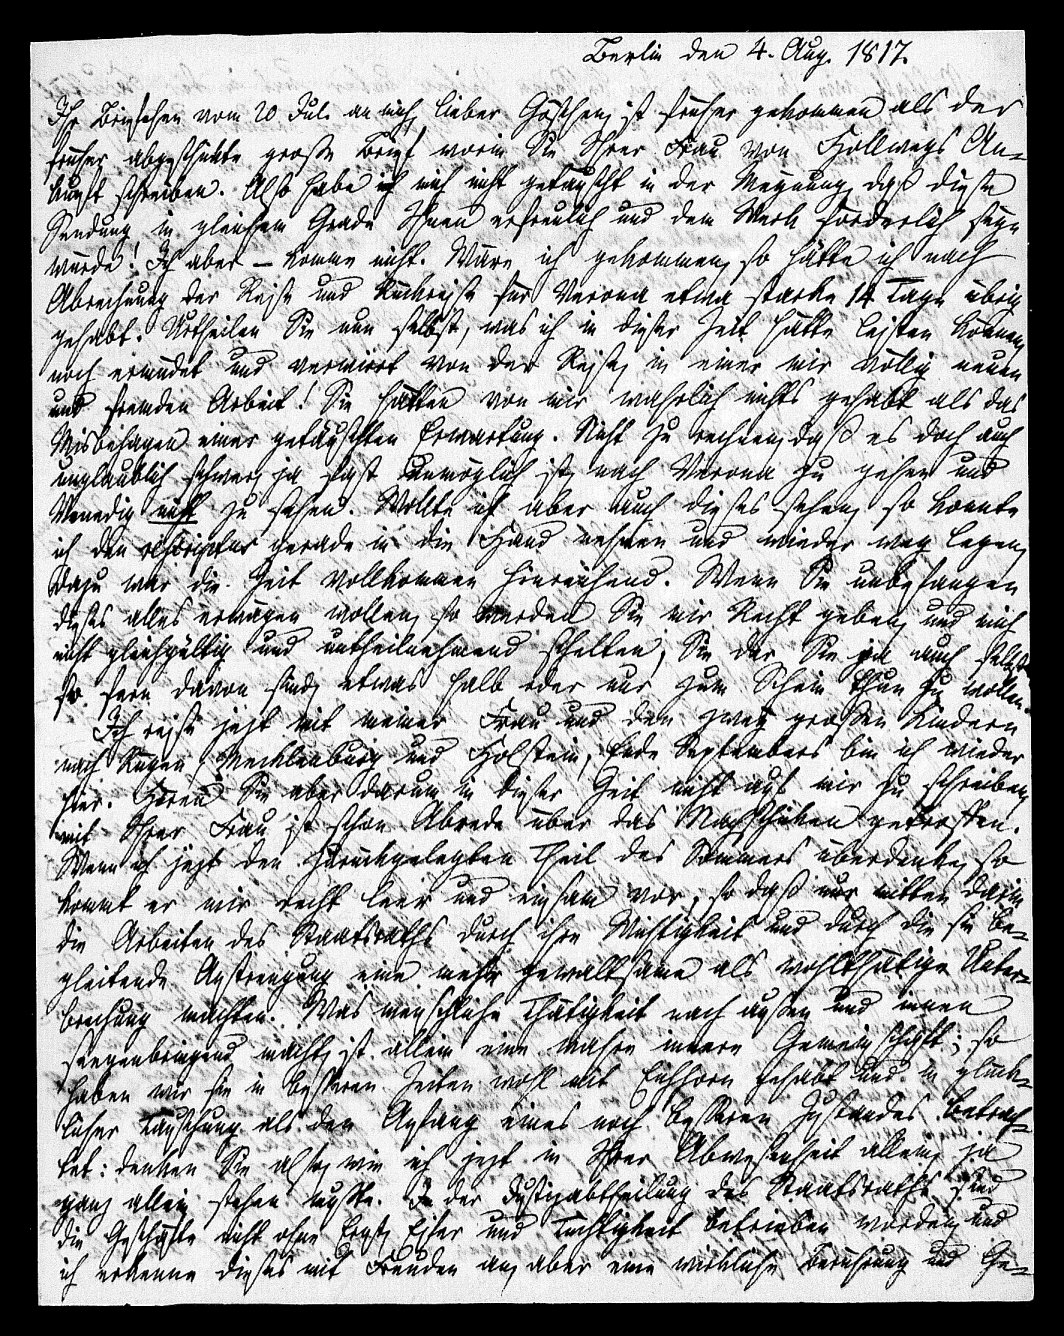 Berlin den 4. Aug. 1817.
Ihr Briefchen vom 20 Juli an mich, lieber Göschen, ist früher gekommen als der
früher abgeschickte große Brief worin Sie Ihrer Frau von Hollwegs An-
kunft schreiben. Also habe ich mich nicht getäuscht in der Meynung, daß diese
Sendung in gleichem Grade Ihnen erfreulich und dem Werk förderlich seyn
würde! Ich aber – komme nicht. Wäre ich gekommen, so hätte ich nach
Abrechnung der Reise und Rückreise für Verona etwa starke 14 Tage übrig
gehabt. Urtheilen Sie nun selbst, was ich in dieser Zeit hätte leisten können,
noch ermüdet und verwirrt von der Reise, in einer mir völlig neuen
und fremden Arbeit! Sie hätten von mir wahrlich nichts gehabt als das
Misbehagen einer getäuschten Erwartung. Nicht zu rechnen, daß es doch auch
unglaublich schwer, ja fast unmöglich ist, nach Verona zu gehen und
Venedig nicht zu sehen. Wollte ich aber auch dieses sehen, so konnte
ich den rescriptus gerade in die Hand nehmen und wieder weg legen,
dazu war die Zeit vollkommen hinreichend. Wenn Sie unbefangen
dieses alles erwägen wollen, so werden Sie mir Recht geben, und mich
nicht gleichgültig und untheilnehmend schelten, Sie der Sie ja auch selbst
so fern davon sind, etwas halb oder nur zum Schein thun zu wollen.
Ich reise jetzt mit meiner Frau und den zwey großen Kindern
nach Rügen, Mecklenburg und Holstein, Ende Septembers bin ich wieder
hier. Hören Sie aber darum in dieser Zeit nicht auf mir zu schreiben,
mit Ihrer Frau ist schon Abrede über das Nachschicken getroffen.
Wenn ich jetzt den zurückgelegten Theil des Sommers überdenke, so
kommt er mir recht leer und einsam vor, so daß nur mitten darin
die Arbeiten des Staatsraths durch ihre Wichtigkeit und durch die sie be-
gleitende Anstrengung eine mehr gewaltsame als wohlthätige Unter-
brechung machten. Was menschliche Thätigkeit nach außen und innen
seegenbringend macht, ist allein eine wahre innere Gemeinschaft; so
haben wir sie in besseren Zeiten wohl mit Eichhorn gehabt und in glück-
licher Täuschung als den Anfang eines noch besseren Zustandes betrach-
tet: denken Sie also, wie ich jetzt in Ihrer Abwesenheit allein, ja
ganz allein stehen mußte. In der Justizabtheilung des Staatsraths sind
die Geschäfte nicht ohne Ernst, Eifer und Tüchtigkeit betrieben worden, und
ich erkenne dieses mit Freuden an, aber eine wirkliche Berührung und Ge-